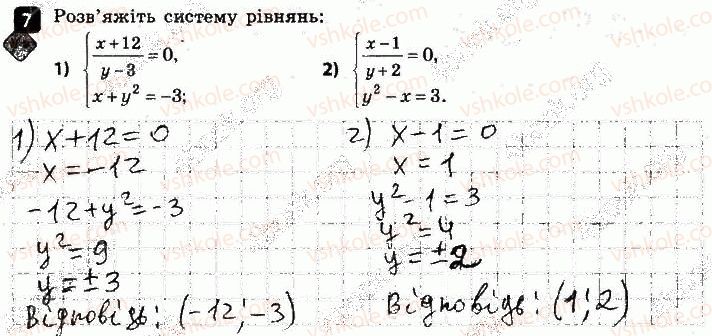 7 Розв'яжіть систему рівнянь:
1) { (x+12)/(y-3) = 0,
x + y² = -3;
2) { (x-1)/(y+2) = 0,
y² - x = 3.
1) x+12=0
x=-12
-12+y²=-3
y²=9
y=±3
Відповідь: (-12;-3)
2) x-1=0
x=1
y²-1=3
y²=4
y=±2
Відповідь: (1;2)
vshkole.com